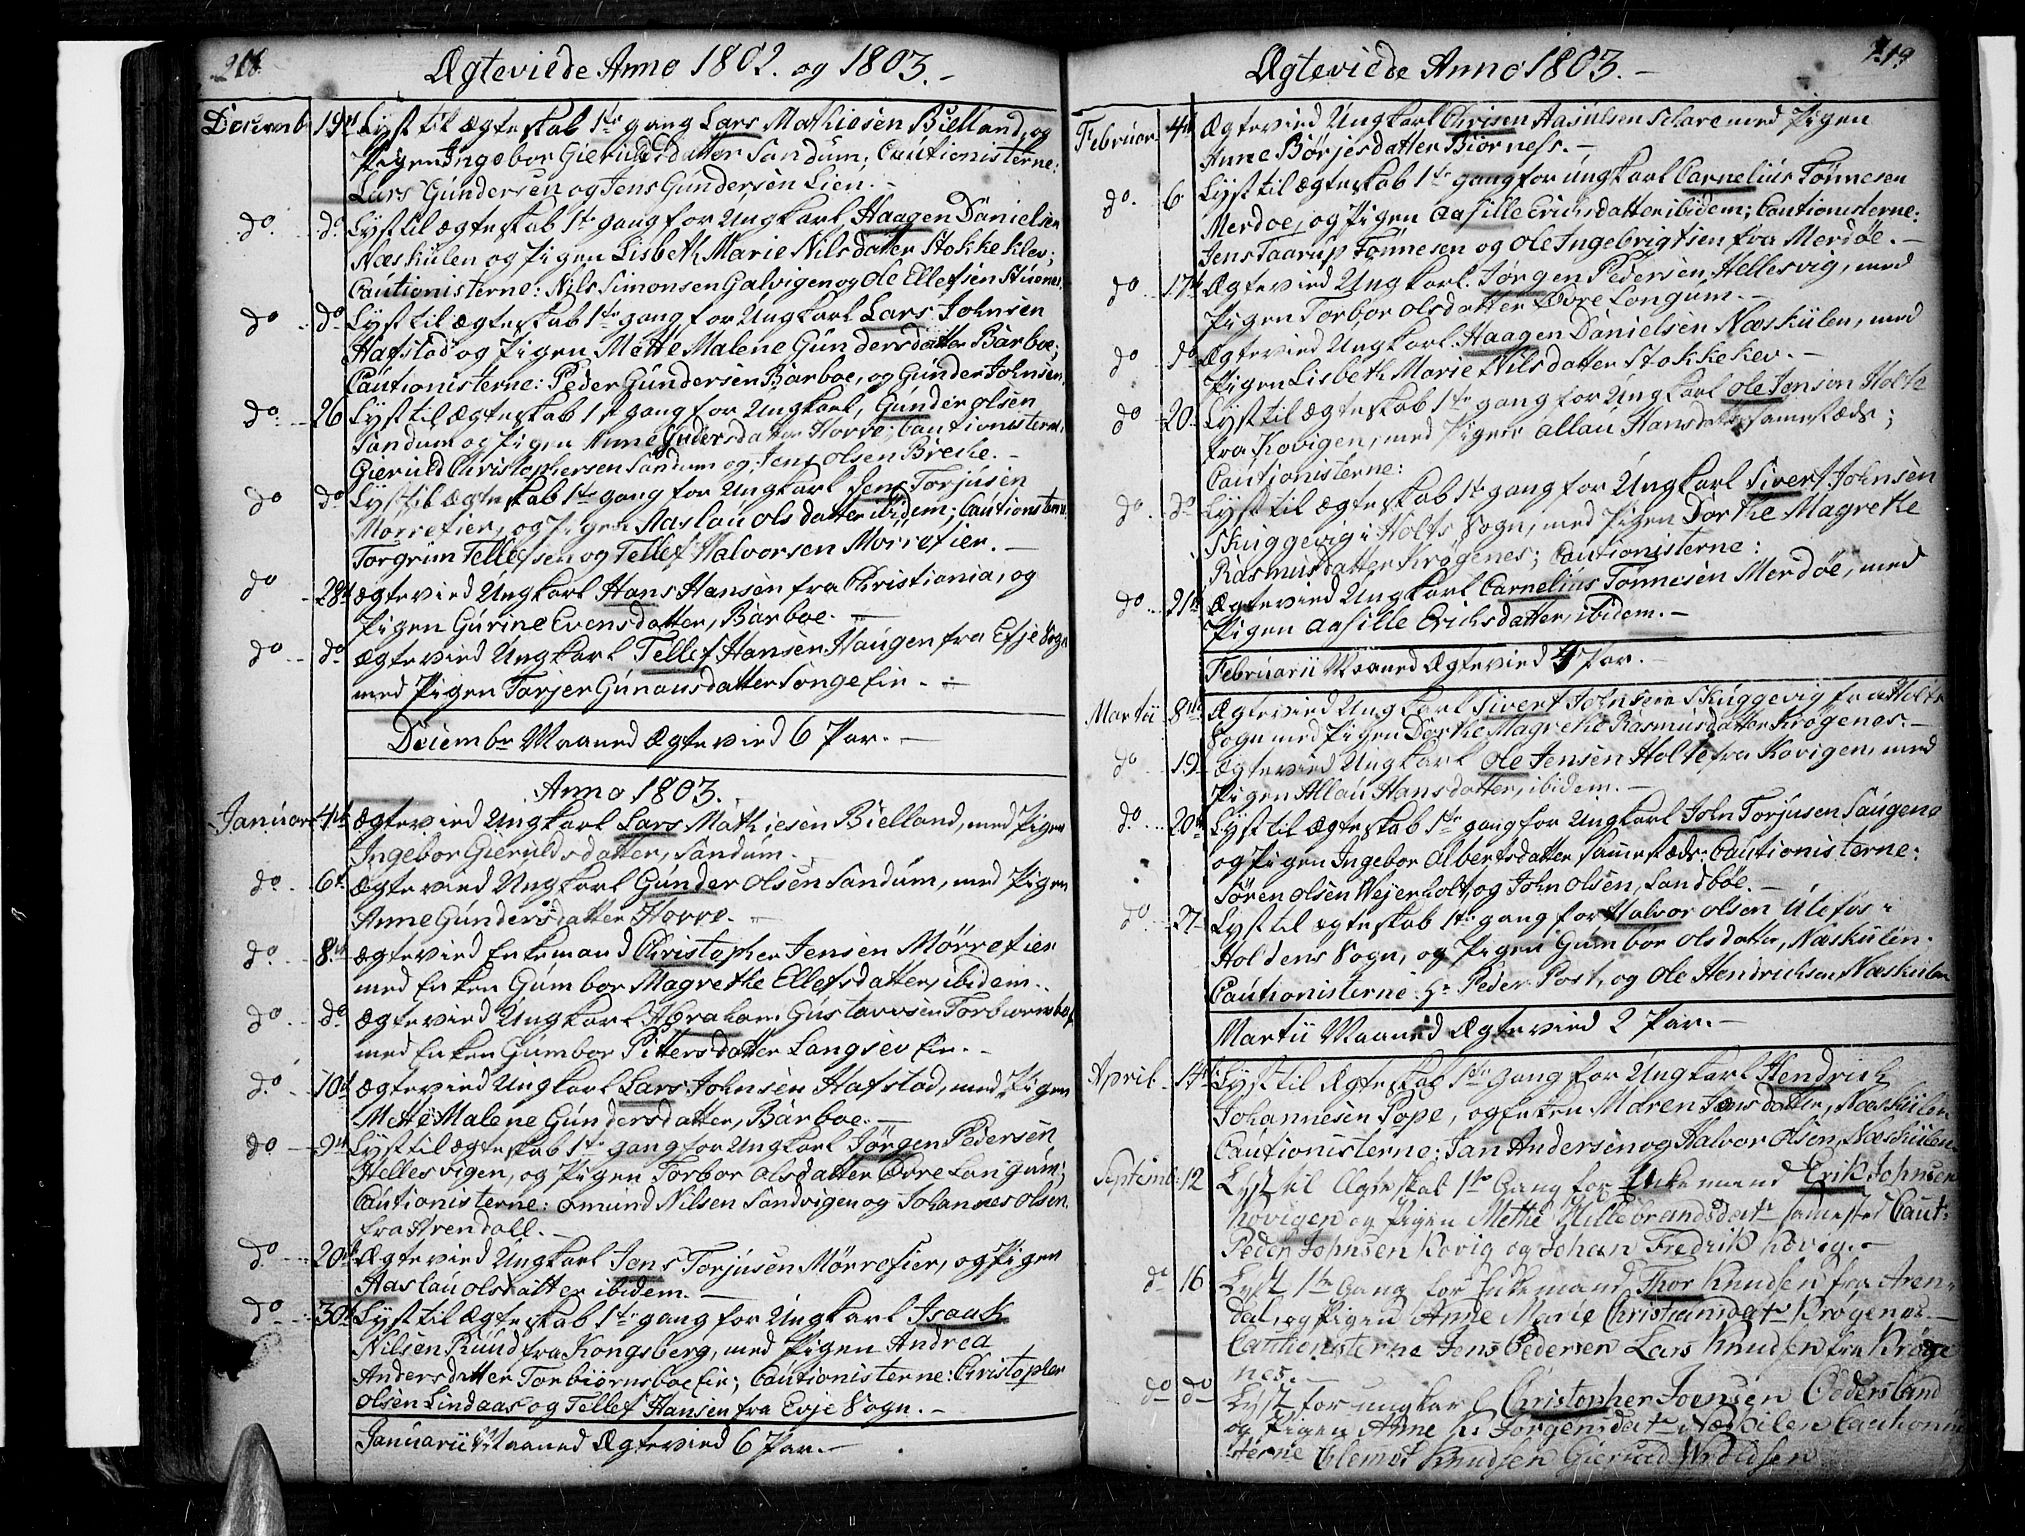 218
Ægteviede Anno 1802. og 1803.-
Decemb. 19de Lyst til Ægteskab 1ste gang Lars Mathiesen Bielland, og
Pigen Ingebor Gierulds datter Sandum; Cautionisterne:
Lars Gundersen og Jens Gundersen Lien.-
do. do Lyst til Ægteskab 1ste gang for Ungkarl Haagen Danielsen
Næskilen og Pigen Lisbeth Marie Nilsdatter Stokkeklev;
Cautionisterne: Nils Simonsen Galvigen og Ole Ellefsen
do do Lyst til Ægteskab 1ste gang for Ungkarl Lars Johnsen
Hafstad og Pigen Mette Malene Gundersdatter Barboe;
Cautionisterne: Peder Gundersen Barboe, og Gunder Johnsen
do. 26 Lyst til Ægteskab 1ste gang for Ungkarl, Gunder Olsen
Sandum og Pigen Anne Gundersdatter Horve; Cautionisterne:
Gieruld Christophersen Sandum og Jens Olsen Breche.-
do do Lyst til Ægteskab 1ste gang for Ungkarl Jens Torjusen
Morrefier, og Pigen Aaslau Olsdatter ibidem; Cautionisterne
Torgrim Tellefsen og Tellef Halvorsen Morrefier.-
do 28de Ægtevied Ungkarl Hans Hansen fra Christiania, og
Pigen Gurine Evensdatter, Barboe.-
do do Ægtevied Ungkarl Tellef Hansen Haugen fra Efje Sogn
med Pigen Torjer Gunausdatter Songe Eie.-
Decembr Maaned Ægtevied 6 Par.-
Anno 1803.
Januar 4de Ægtevied Ungkarl Lars Mathiesen Bielland, med Pigen
Ingebor Gieruldsdatter, Sandum.
do. 6te Ægtevied Ungkarl Gunder Olsen Sandum, med Pigen
Anne Gundersdatter Horve.-
do. 8de Ægtevied Enkemand Christopher Jensen Mørrefier
med Enken Gumbor Magrethe Ellefsdatter, ibidem.
do. do Ægtevied Ungkarl Abraham Gustavsen
med Enken Gumbor Pittersdatter Langsev Eie.-
do. 10de Ægtevied Ungkarl Lars Johnsen Hafstad, med Pigen
Mette Malene Gundersdatter, Barboe.-
do 9de Lyst til Ægteskab 1ste gang for Ungkarl Jørgen Pedersen
Hellesvigen, og Pigen Torbor Olsdatter Øvre Longum;
Cautionisterne: Omund Nilsen Sandvigen og Johannes Olsen
fra Arendall.-
do. 20de Ægtevied Ungkarl Jens Torjusen Mørrefier, og Pigen
Aaslau Olsdatter ibidem.-
do. 30te Lyst til Ægteskab 1ste gang for Ungkarl Isaach
Nilsen Ruud fra Kongsberg, med Pigen Andrea
Andersdatter Torbiørnsboe Eie; Cautionisterne: Christopher
Olsen Lindaas og Tellef Hansen fra Evje Sogn.-
Januarii Maaned Ægtevied 6 Par.-
219
Ægteviede Anno 1803.-
Februar. 4de Ægtevied Ungkarl Chrisen med Pigen
Anne Børjesdatter Biørness.-
do. 6. Lyst til Ægteskab 1ste gang for Ungkarl Carnelius Tønnesen
Merdoe, og Pigen Aasille Erichsdatter ibidem; Cautionisterne:
Jens Taarup Tønnesen og Ole Ingebrigtsen fra Merdøe.-
do 17de Ægtevied Ungkarl. Jørgen Pedersen Hellesvig, med
Pigen Torbor Olsdatter Øvre Longum.-
do do Ægtevied Ungkarl. Haagen Danielsen Næskilen, med
Pigen Lisbeth Marie Nilsdatter Stokkekev.-
do 20. Lyst til Ægteskab 1ste gang for Ungkarl Ole Jensen Holte
fra Kovigen, med Pigen Allau Hansdatter sammestæds;
Cautionisterne:
do. do Lyst til Ægteskab 1ste gang for Ungkarl Sivert Johnsen
Skuggevig i Holts Sogn, med Pigen Dorthe Magrethe
Rasmusdatter Krøgenes; Cautionisterne:
do. 21de Ægtevied Ungkarl Carnelius Tønnesen Merdøe, med
Pigen Aasille Erichsdatter, ibidem.-
Februarii Maaned Ægtevied 4 Par.-
Martii 8de Ægtevied Ungkarl Sivert Johnsen Skuggevig fra Holts
Sogn med Pigen Dorthe Magrethe Rasmusdatter Krøgenes.-
do 19 Ægtevied Ungkarl Ole Jensen Holte fra Kovigen, med
Pigen Allau Hansdatter, ibidem.-
do. 20de Lyst til Ægteskab 1ste gang for Ungkarl John Torjusen Saugene
og Pigen Ingebor Albertsdatter sammestæds: Cautionisterne:
Søren Olsen Vejerholt, og John Olsen, Sandbøe.-
do. 27 Lyst til Ægteskab 1ste gang for Halvor Olsen Ulefos i
Holdens Sogn, og Pigen Gumbor Olsdatter, Næskilen.
Cautionisterne: Hr Peder Post, og Ole Hendrichsen Næskilen
Martii Maaned Ægtevied 2 Par.-
April. 14de Lyst til Ægteskab 1ste Gang for Ungkarl Hendrich
Johannesen Pope, og Enken Maren Jensdatter, Næskilen
Cautionisterne: Jan Andersen og Halvor Olsen, Næskilen.
Septemb: 12 Lyst til Ægteskab 1ste Gang for Enkemand Erik Johnsen
Kovigen og Pigen Methe Hillebrandsdatr samested Caut:
Peder Johnsen Kovig og Johan Fredrik Kovig.-
do 16 Lyst 1ste Gang for Enkemand Thor Knudsen fra Aren-
dal, og Pigen Anne Marie Christiansdatr Krøgenes.-
Cautionisterne Jens Pedersen Lars Knudsen fra Krøge
nes.-
do do Lyst for ungkarl Christopher Jovnsen Peddersland
og Pigen Anne K. Jørgensdatr Næskilen Cautionni
sterne Clemet Knudsen Gieruld